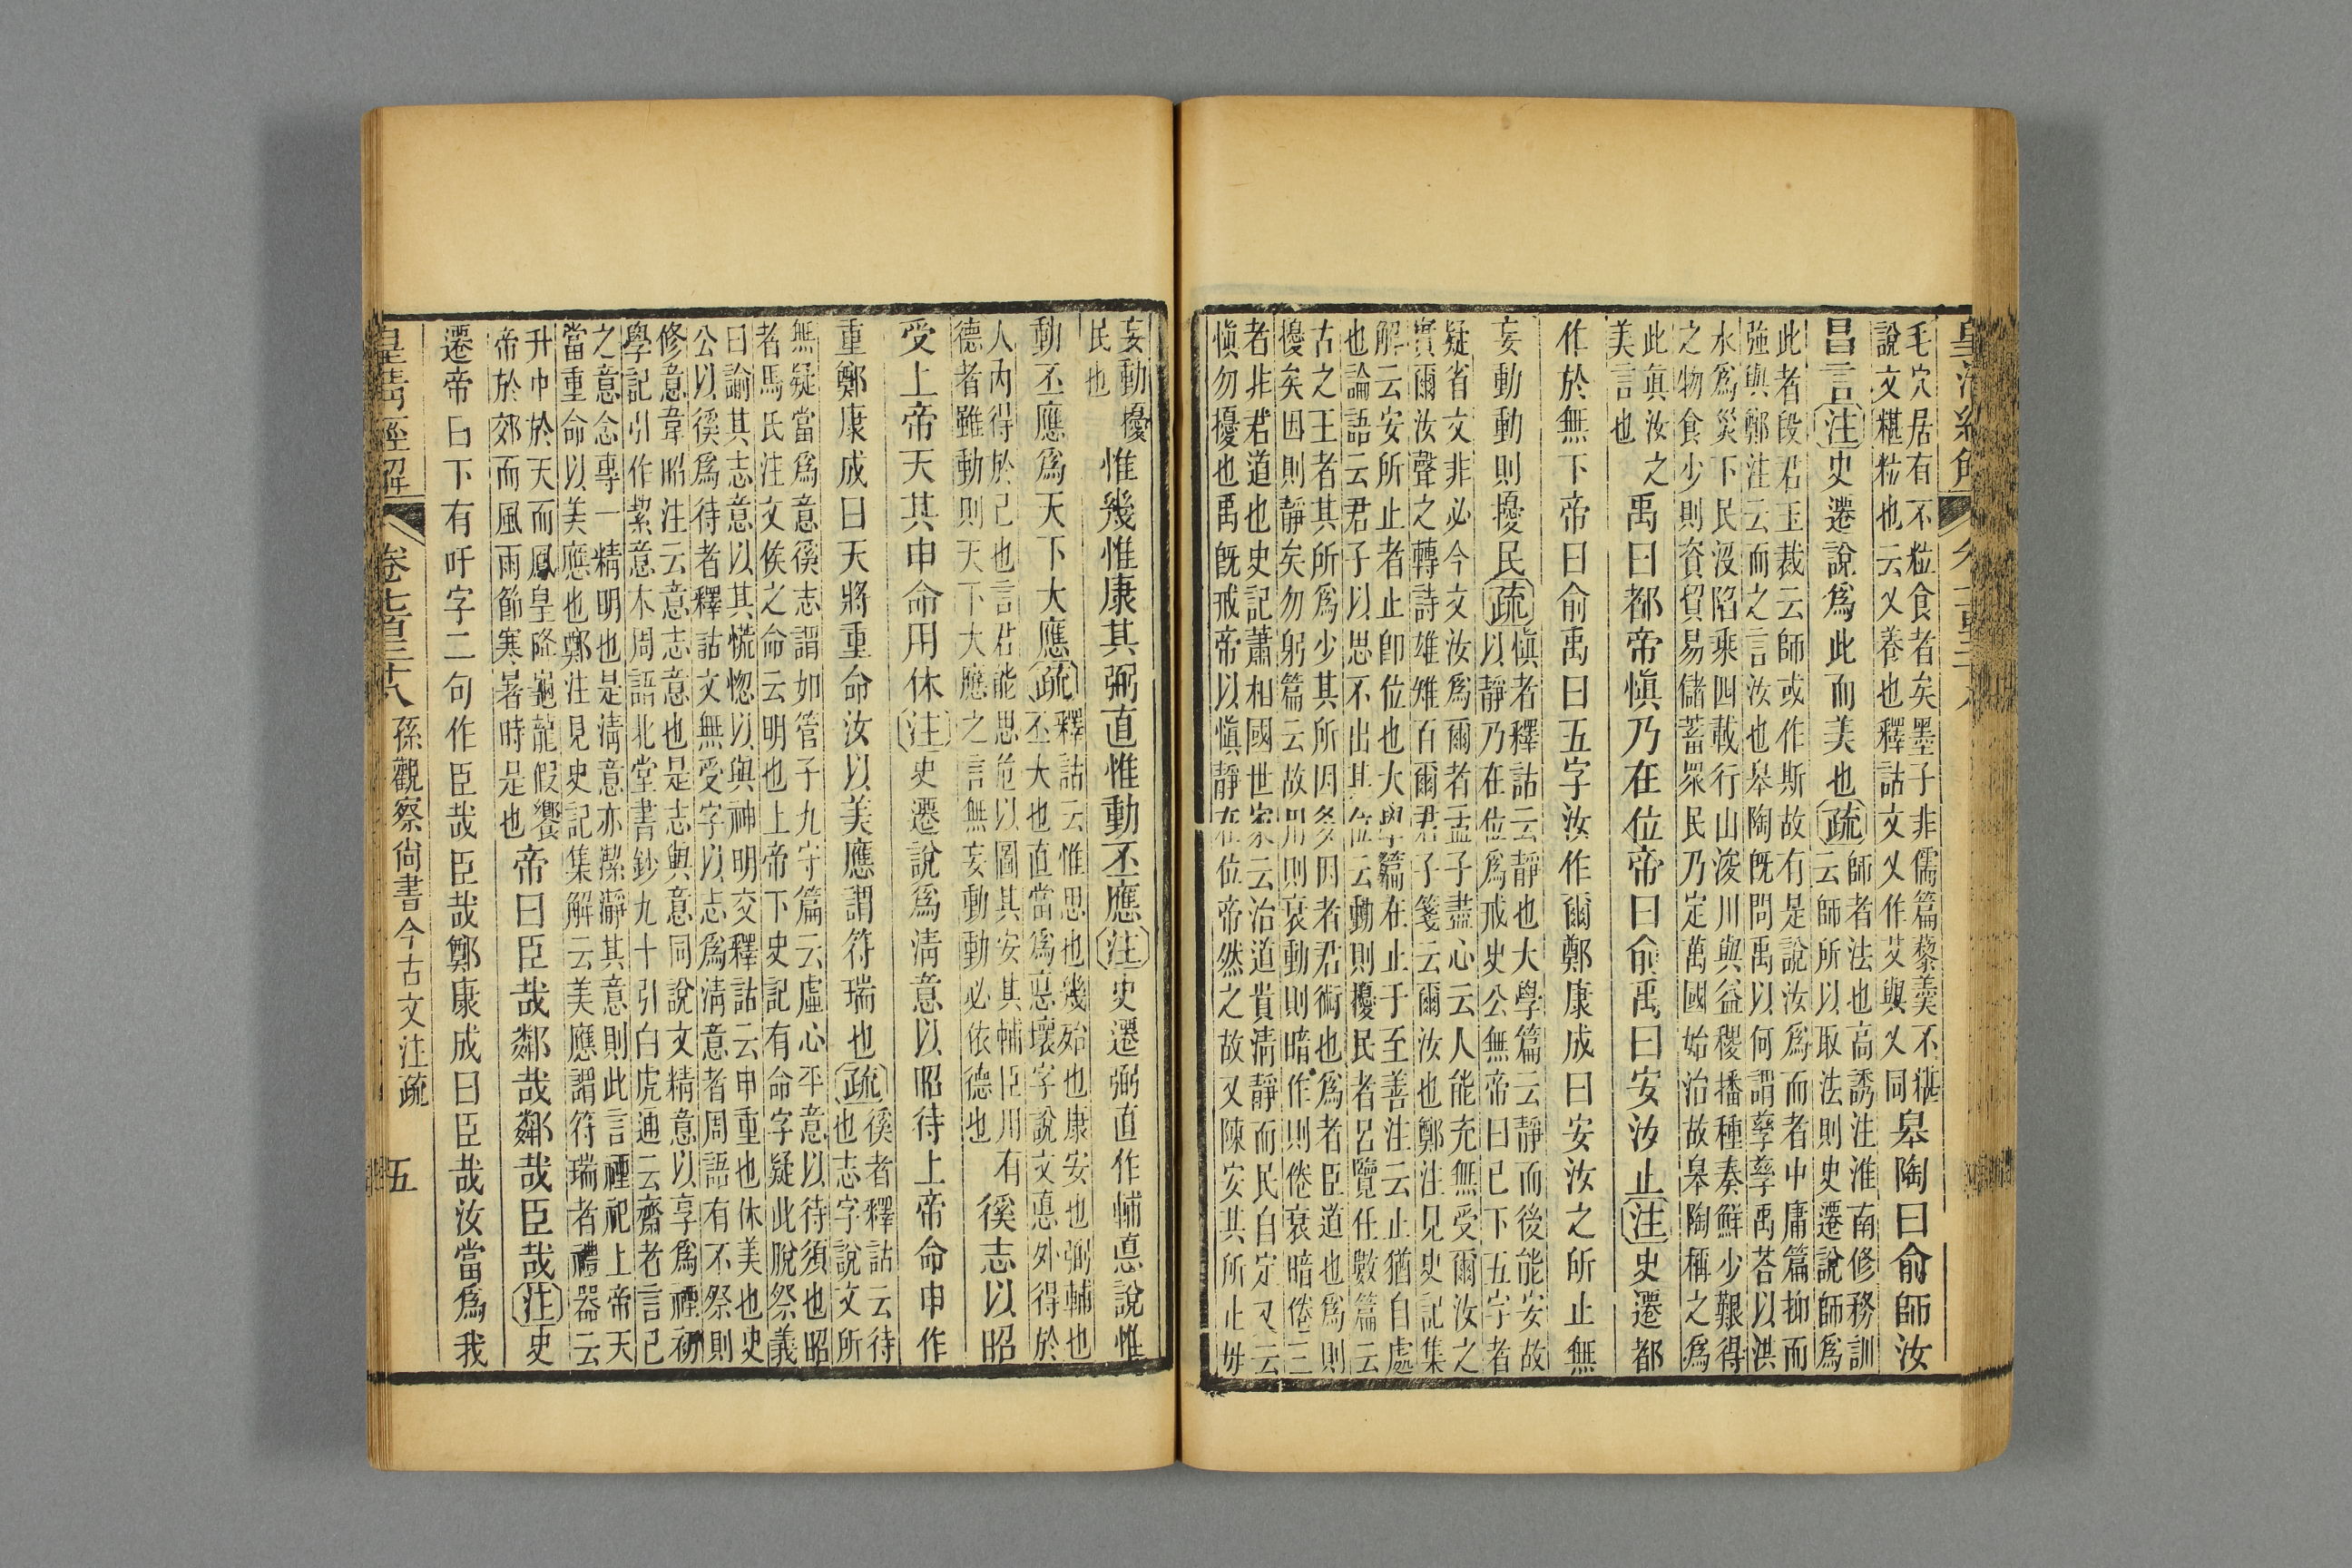 毛穴居有不粒食者矣墨子非儒篇藜羹不糂
說文糂粒也云乂養也釋詁文乂作艾與乂同
皋陶曰俞師汝
昌言注史遷說爲此而美也疏
師者法也高誘注淮南修務訓
云師所以取法則史遷說師爲
此者段君玉裁云師或作斯故有是說汝爲而者中庸篇抑而
強與鄭注云而之言汝也皋陶旣問禹以何謂孳孳禹荅以洪
水爲災下民沒陷乘四載行山浚川與益稷播種奏鮮少艱得
之物食少則資貿易儲蓄眾民乃定萬國始治故皋陶稱之爲
此眞汝之
美言也
禹曰都帝愼乃在位帝曰俞禹曰安汝止注史遷都
作於無下帝曰俞禹曰五字汝作爾鄭康成曰安汝之所止無
妄動動則擾民疏
愼者釋詁云靜也大學篇云靜而後能安故
以靜乃在位爲戒史公無帝曰已下五字者
疑省文非必今文汝爲爾者孟子盡心云人能充無受爾汝之
實爾汝聲之轉詩雄雉百爾君子箋云爾汝也鄭注見史記集
解云安所止者止卽位也大學篇在止于至善注云止猶自處
也論語云君子以思不出其位云動則擾民者呂覽任數篇云
古之王者其所爲少其所因多因者君術也爲者臣道也爲則
擾矣因則靜矣勿躬篇云故用則衰動則暗作則倦衰暗倦三
者非君道也史記蕭相國世家云治道貴清靜而民自定又云
愼勿擾也禹旣戒帝以愼靜在位帝然之故又陳安其所止毋
妄動擾
民也
惟幾惟康其弼直惟動丕應注史遷弼直作輔悳說惟
動丕應爲天下大應疏
釋詁云惟思也幾殆也康安也弼輔也
丕大也直當爲悳壞字說文悳外得於
人內得於己也言君能思危以圖其安其輔臣用有
德者雖動則天下大應之言無妄動動必依德也
徯志以昭
受上帝天其申命用休注史遷說爲淸意以昭待上帝命申作
重鄭康成曰天將重命汝以美應謂符瑞也疏
徯者釋詁云待
也志字說文所
無疑當爲意徯志謂如管子九守篇云虛心平意以待須也昭
者馬氏注文侯之命云明也上帝下史記有命字疑此脫祭義
曰諭其志意以其慌惚以與神明交釋詁云申重也休美也史
公以徯爲待者釋詁文無受字以志爲淸意者周語有不祭則
修意韋昭注云意志意也是志與意同說文精意以享爲禋初
學記引作絜意木周語北堂書鈔九十引白虎通云齋者言己
之意念專一精明也是淸意亦潔瀞其意則此言禋祀上帝天
當重命以美應也鄭注見史記集解云美應謂符瑞者禮器云
升中於天而鳳皇降龜龍假饗
帝於郊而風雨節寒暑時是也
帝曰臣哉鄰哉鄰哉臣哉注史
遷帝曰下有吁字二句作臣哉臣哉鄭康成曰臣哉汝當爲我
皇清經解 卷七百三十八 孫觀察尙書今古文注疏 五